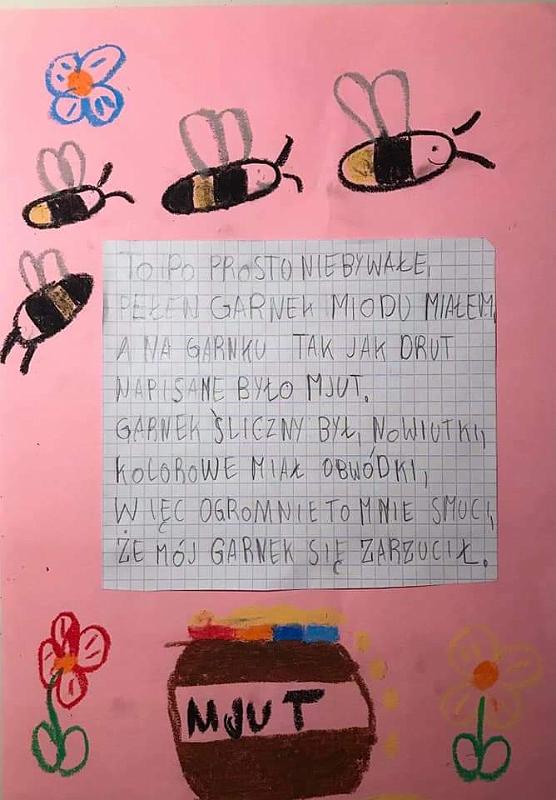 TO PO PROSTU NIEBYWAŁE,
PEŁEN GARNEK MIODU MIAŁEM,
A NA GARNKU TAK JAK DRUT
NAPISANE BYŁO MJUT.
GARNEK ŚLICZNY BYŁ, NOWIUTKI,
KOLOROWE MIAŁ OBWÓDKI,
WIĘC OGROMNIE TO MNIE SMUCI,
ŻE MÓJ GARNEK SIĘ ZARZUCIŁ.
MJUT